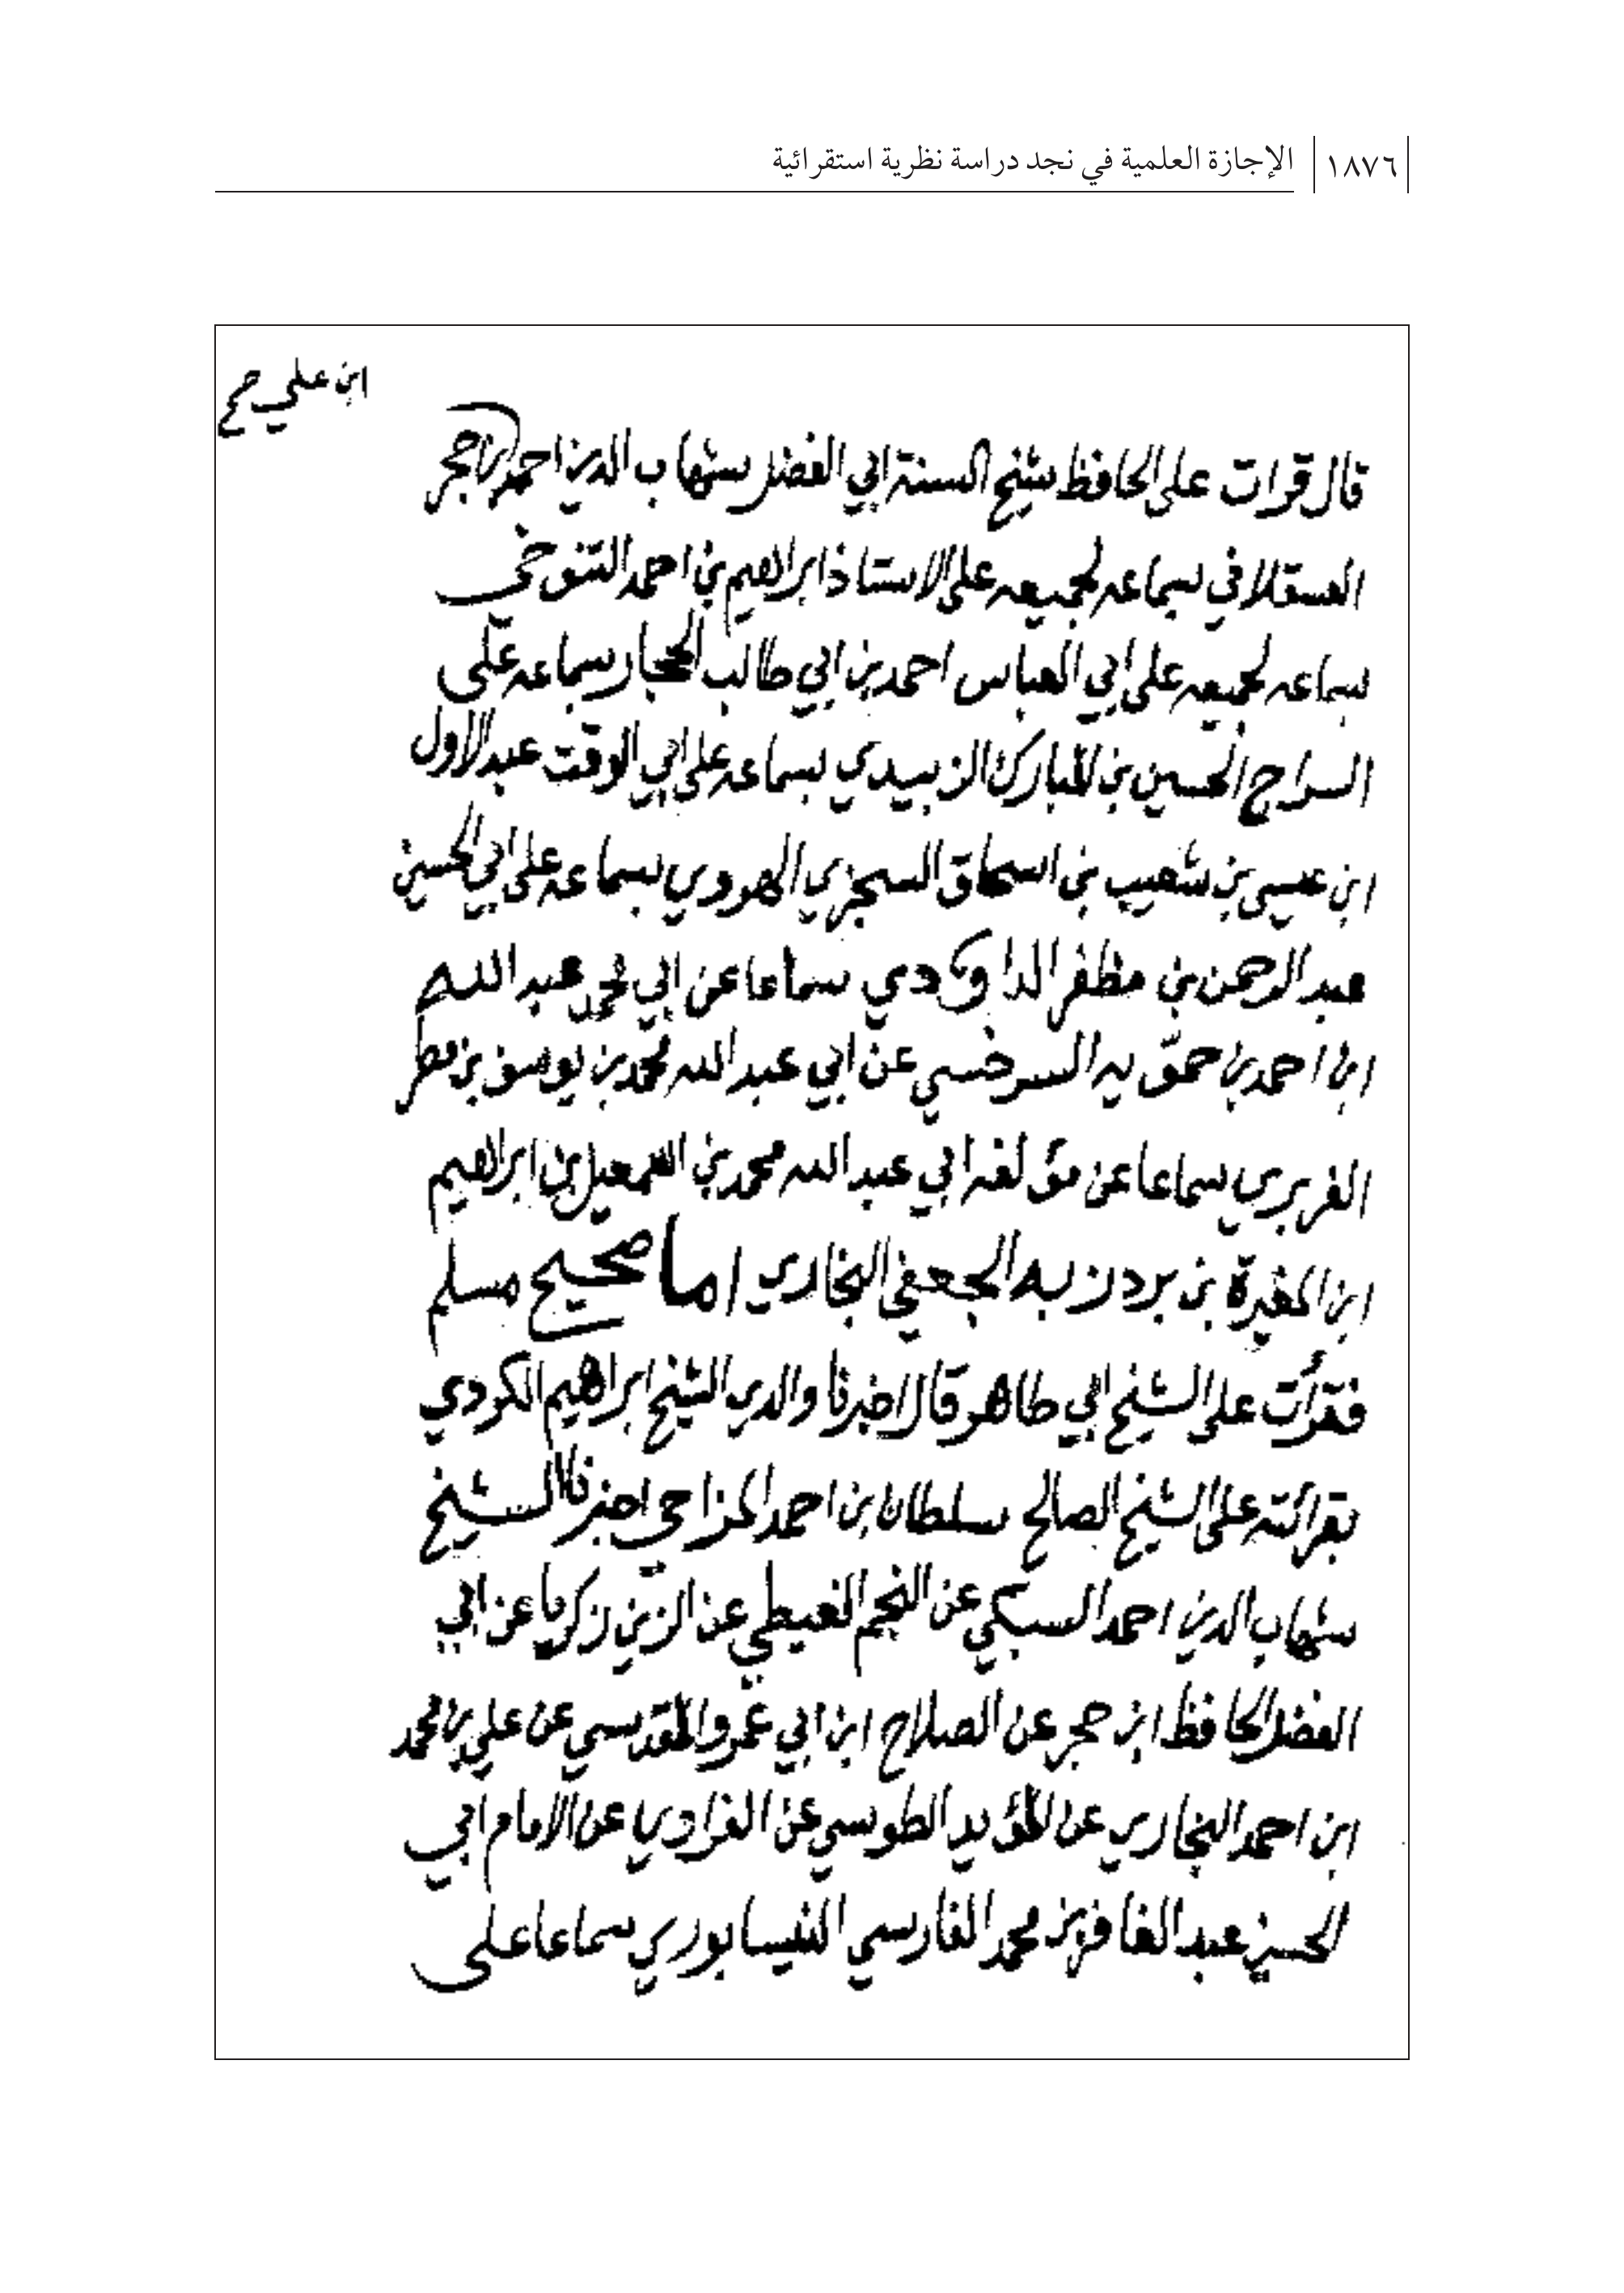 ١٨٧٦ الإجازة العلمية في نجد دراسة نظرية استقرائية
ابن علي صح
قال قرات على الحافظ شيخ السنة ابي الفضل شهاب الدين احمد بن حجر
العسقلاني بسماعه لجميعه على الاستاذ ابراهيم بن احمد التنوخي
بسماعه لجميعه على ابي العباس احمد بن ابي طالب الحجار بسماعه على
السراج الحسين بن المبارك الزبيدي بسماعه على ابي الوقت عبد الاول
ابن عيسى بن شعيب بن اسحاق السجزي الهروي بسماعه على ابي الحسن
عبد الرحمن بن مظفر الداودي سماعا عن ابي محمد عبد الله
ابن احمد بن حمويه السرخسي عن ابي عبد الله محمد بن يوسف بن مطر
الفربري سماعا عن مؤلفه ابي عبد الله محمد بن اسمعيل بن ابراهيم
ابن المغيرة بن بردزبه الجعفي البخاري اما صحيح مسلم
فقرأت على الشيخ ابي طاهر قال اخبرنا والدي الشيخ ابراهيم الكردي
بقرائته على الشيخ الصالح سلطان ابن احمد المزاحي اخبرنا الشيخ
شهاب الدين احمد السبكي عن النجم الغيطي عن الزين زكريا عن ابي
الفضل الحافظ ابن حجر عن الصلاح ابن ابي عمرو المقدسي عن علي بن محمد
ابن احمد البخاري عن المؤيد الطوسي عن الفراوي عن الامام ابي
الحسين عبد الغافر بن محمد الفارسي النيسابوري سماعا على